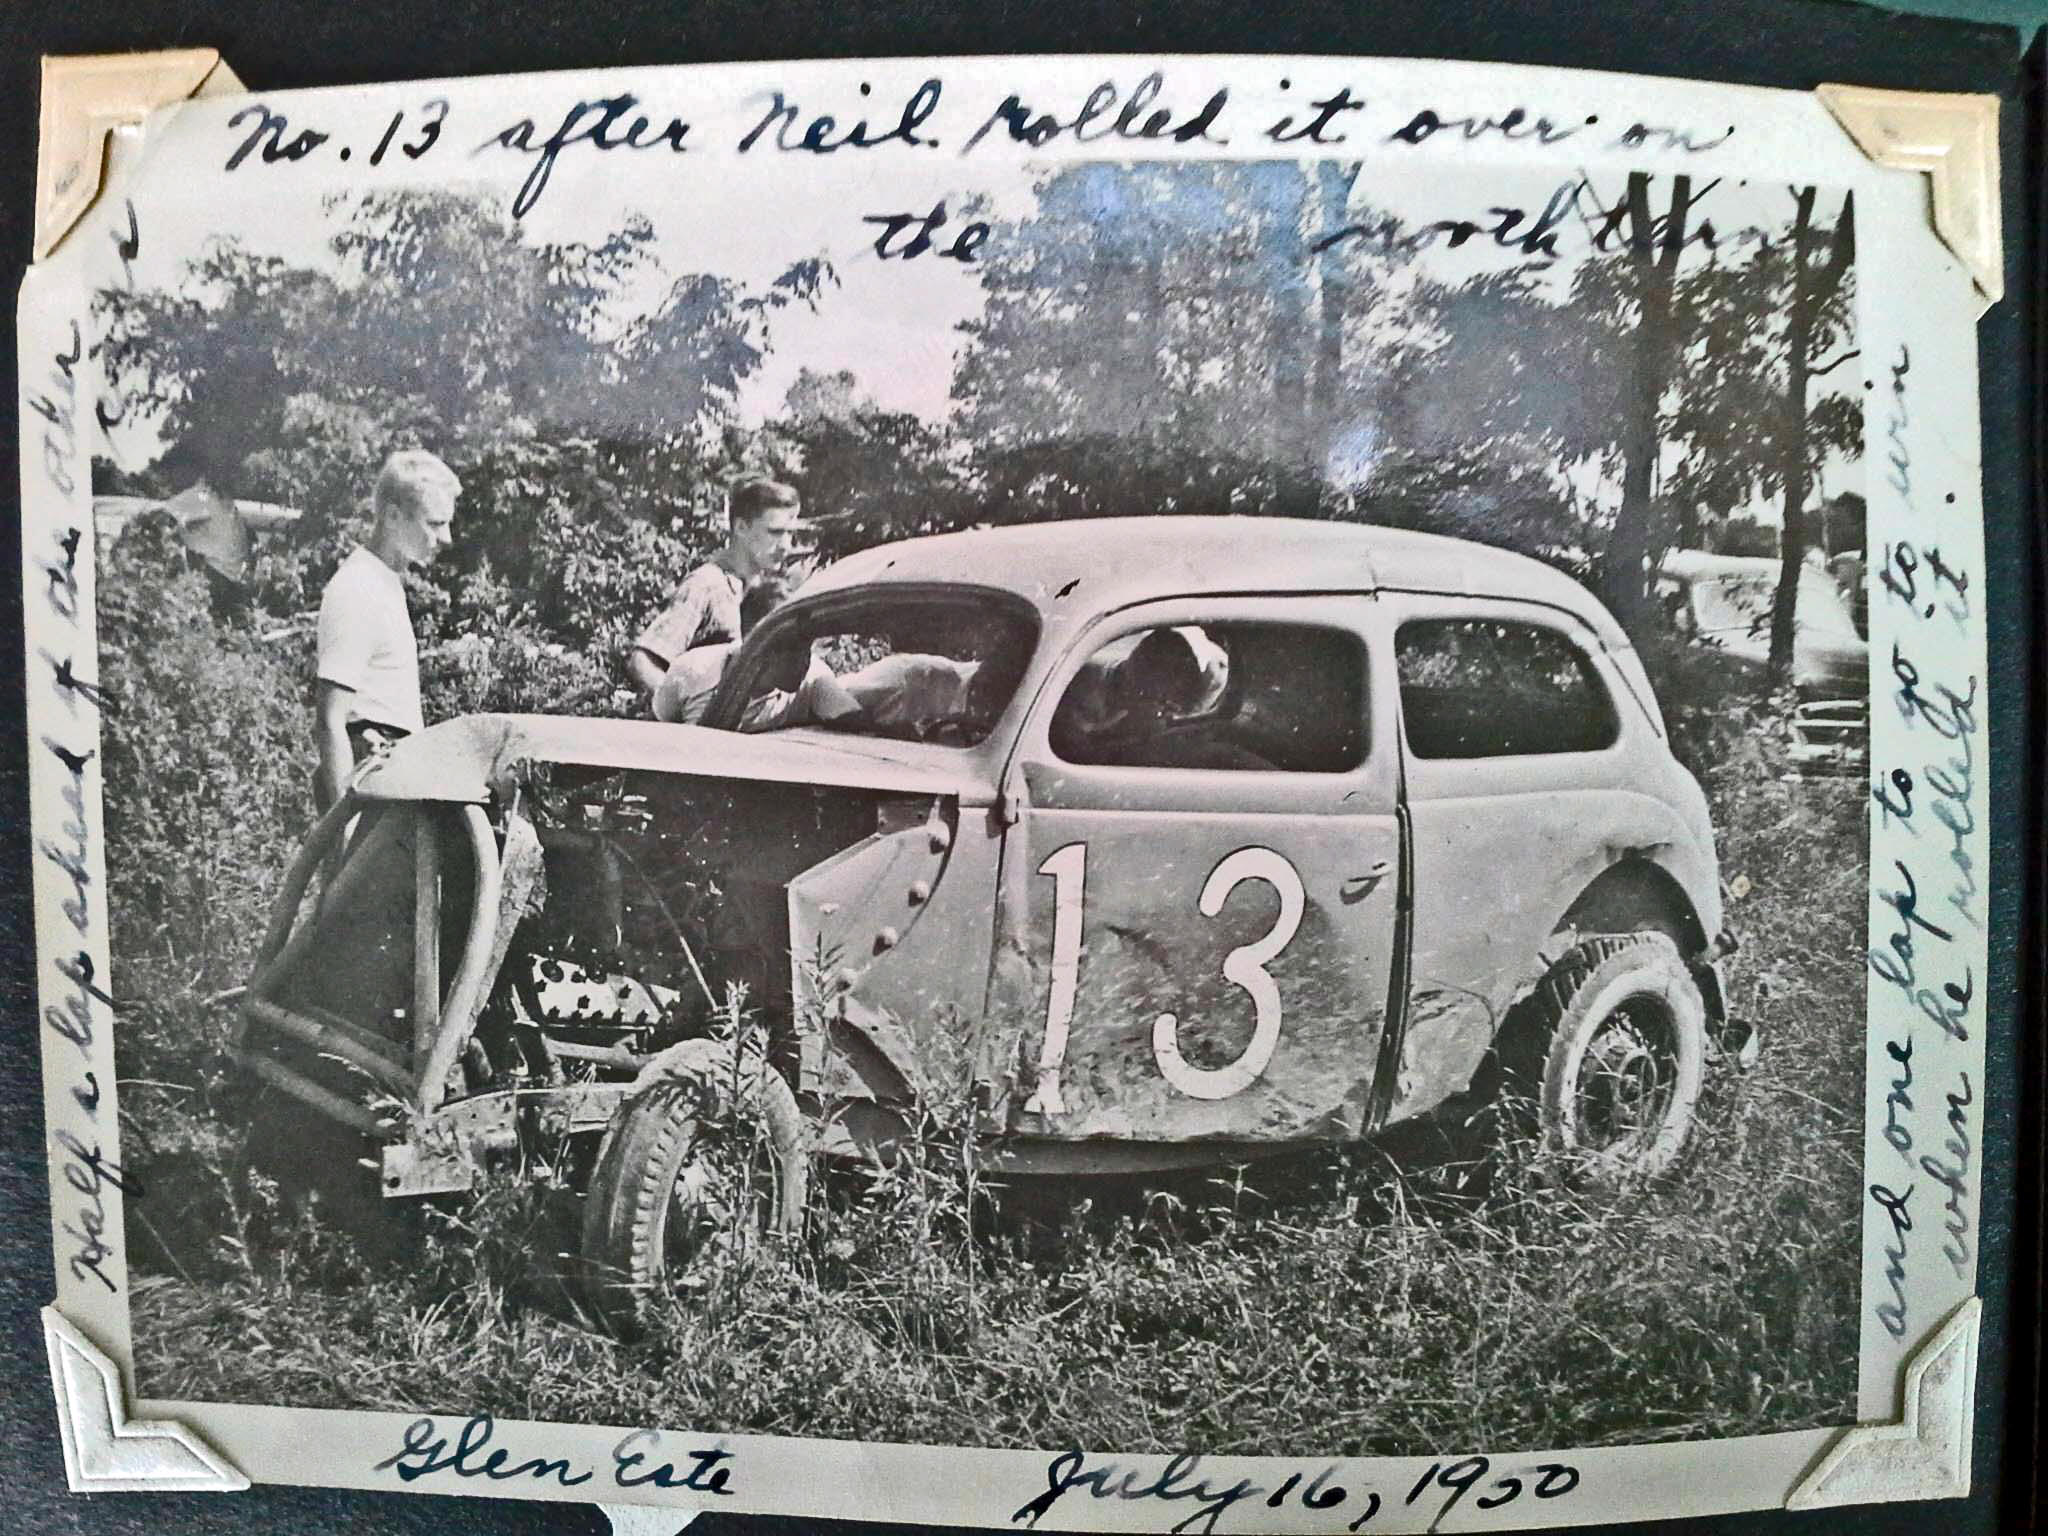 No. 13 after Neil rolled it over on
the north turn
Half a lap ahead of the other
and one lap to go to win
when he rolled it.
13
Glen Este July 16, 1950